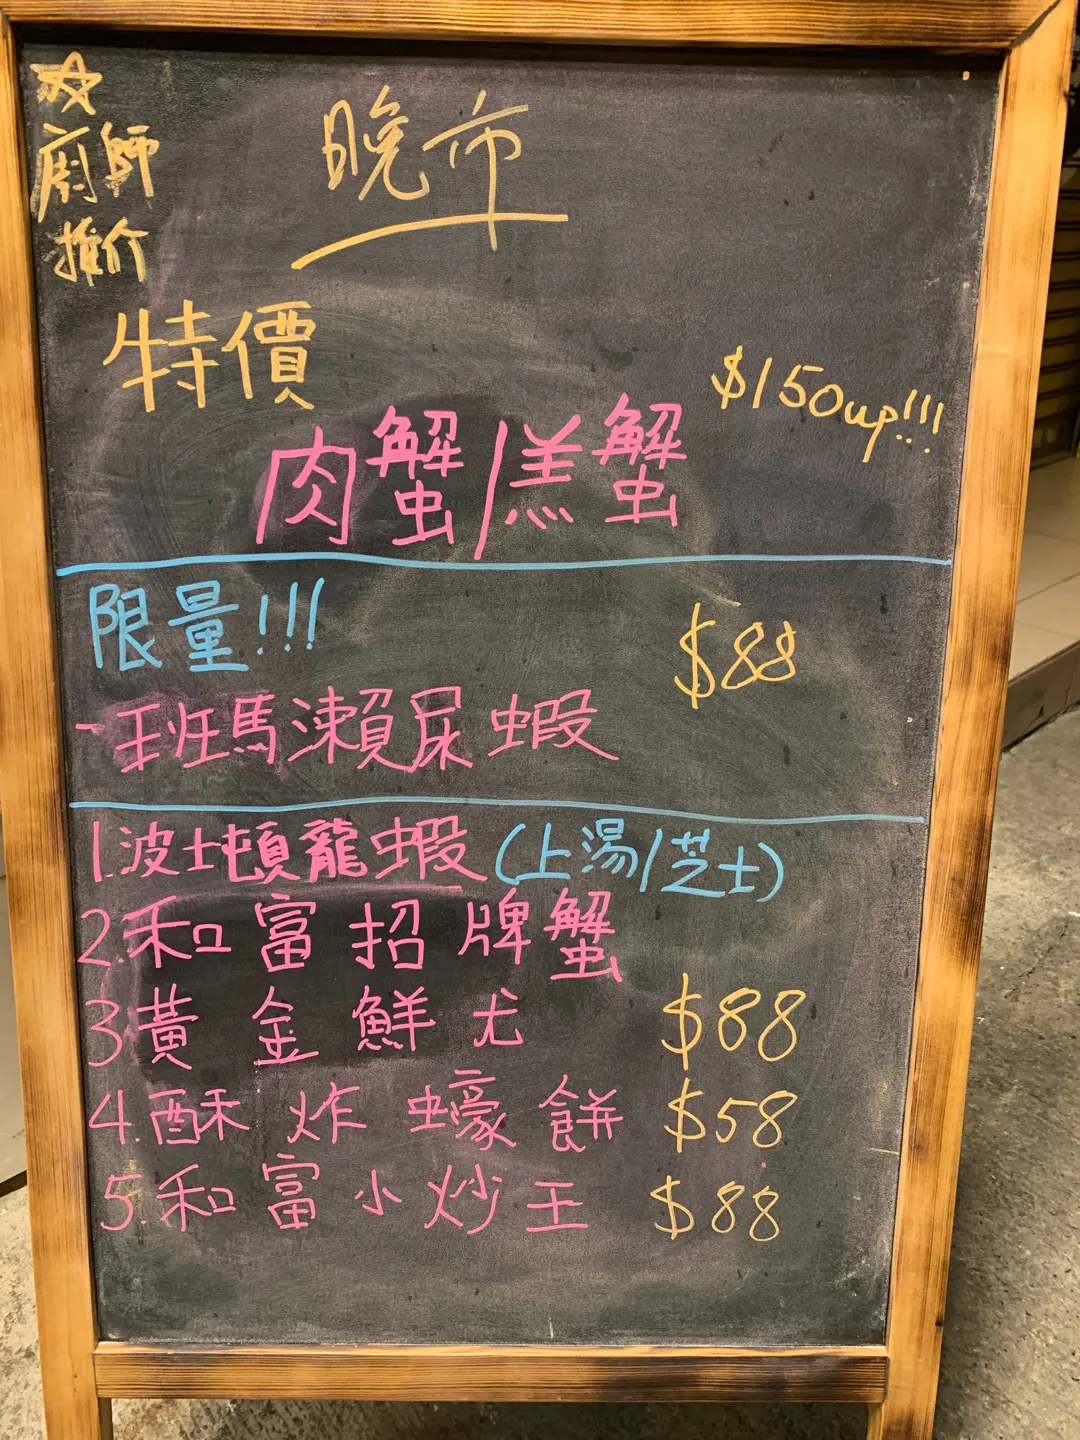 ☆
廚師
推介
晚市
特價
$150up!!!
肉蟹/羔蟹
限量!!!
$88
-班馬瀨尿蝦
1.波士頓龍蝦(上湯/芝士)
2.和富招牌蟹
3黃金鮮尤 $88
4.酥炸蠔餅 $58
5.和富小炒王 $88